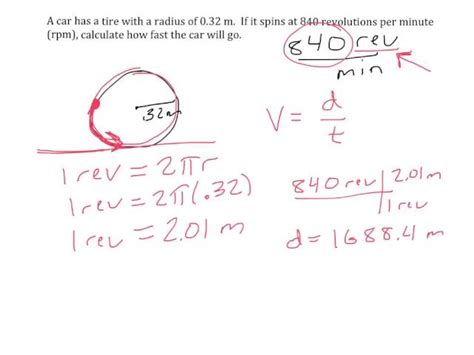 A car has a tire with a radius of 0.32 m. If it spins at 840 revolutions per minute
(rpm), calculate how fast the car will go.
840 rev
min
.32m
V = d
t
1 rev = 2πr
1 rev = 2π(.32)
1 rev = 2.01 m
840 rev | 2.01m
1 rev
d = 1688.4 m